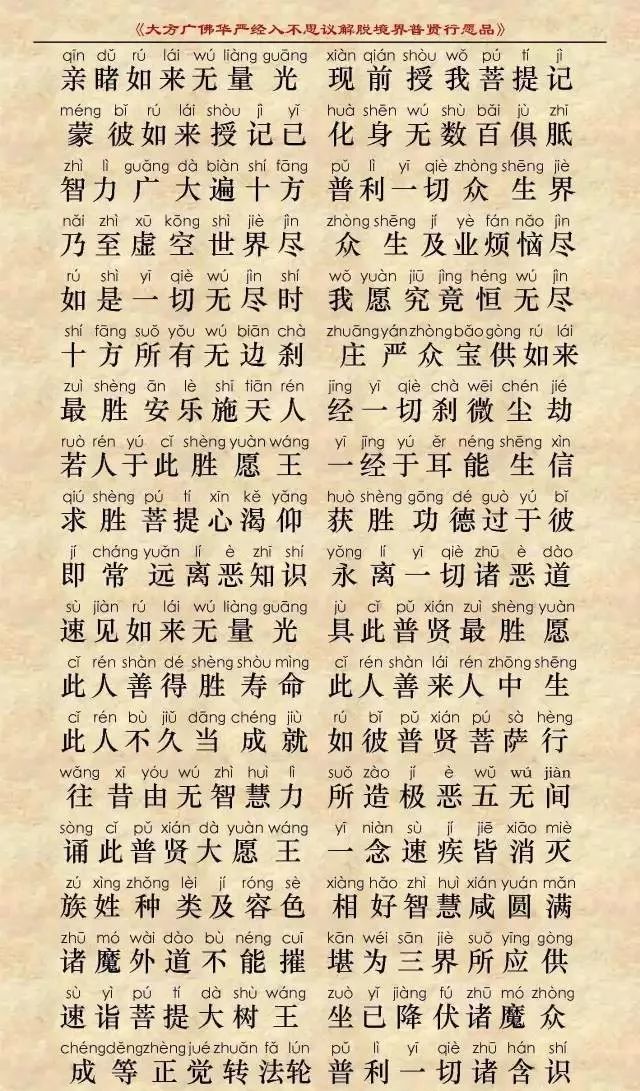 《大方广佛华严经入不思议解脱境界普贤行愿品》
qīn dǔ rú lái wú liàng guāng xiàn qián shòu wǒ pú tí jì
亲睹如来无量光 现前授我菩提记
méng bǐ rú lái shòu jì yǐ huà shēn wú shù bǎi jù zhī
蒙彼如来授记已 化身无数百俱胝
zhì lì guǎng dà biàn shí fāng pǔ lì yī qiè zhòng shēng jiè
智力广大遍十方 普利一切众生界
nǎi zhì xū kōng shì jiè jìn zhòng shēng jí yè fán nǎo jìn
乃至虚空世界尽 众生及业烦恼尽
rú shì yī qiè wú jìn shí wǒ yuàn jiū jìng héng wú jìn
如是一切无尽时 我愿究竟恒无尽
shí fāng suǒ yǒu wú biān chà zhuāng yán zhòng bǎo gòng rú lái
十方所有无边刹 庄严众宝供如来
zuì shèng ān lè shī tiān rén jīng yī qiè chà wēi chén jié
最胜安乐施天人 经一切刹微尘劫
ruò rén yú cǐ shèng yuàn wáng yī jīng yú ěr néng shēng xìn
若人于此胜愿王 一经于耳能生信
qiú shèng pú tí xīn kě yǎng huò shèng gōng dé guò yú bǐ
求胜菩提心渴仰 获胜功德过于彼
jí cháng yuǎn lí è zhī shí yǒng lí yī qiè zhū è dào
即常远离恶知识 永离一切诸恶道
sù jiàn rú lái wú liàng guāng jù cǐ pǔ xián zuì shèng yuàn
速见如来无量光 具此普贤最胜愿
cǐ rén shàn dé shèng shòu mìng cǐ rén shàn lái rén zhōng shēng
此人善得胜寿命 此人善来人中生
cǐ rén bù jiǔ dāng chéng jiù rú bǐ pǔ xián pú sà hèng
此人不久当成就 如彼普贤菩萨行
wǎng xī yóu wú zhì huì lì suǒ zào jí è wǔ wú jiàn
往昔由无智慧力 所造极恶五无间
sòng cǐ pǔ xián dà yuàn wáng yī niàn sù jí jiē xiāo miè
诵此普贤大愿王 一念速疾皆消灭
zú xìng zhǒng lèi jí róng sè xiàng hǎo zhì huì xián yuán mǎn
族姓种类及容色 相好智慧咸圆满
zhū mó wài dào bù néng cuī kān wéi sān jiè suǒ yīng gòng
诸魔外道不能摧 堪为三界所应供
sù yì pú tí dà shù wáng zuò yǐ jiàng fú zhū mó zhòng
速诣菩提大树王 坐已降伏诸魔众
chéng děng zhèng jué zhuǎn fǎ lún pǔ lì yī qiè zhū hán shí
成等正觉转法轮 普利一切诸含识